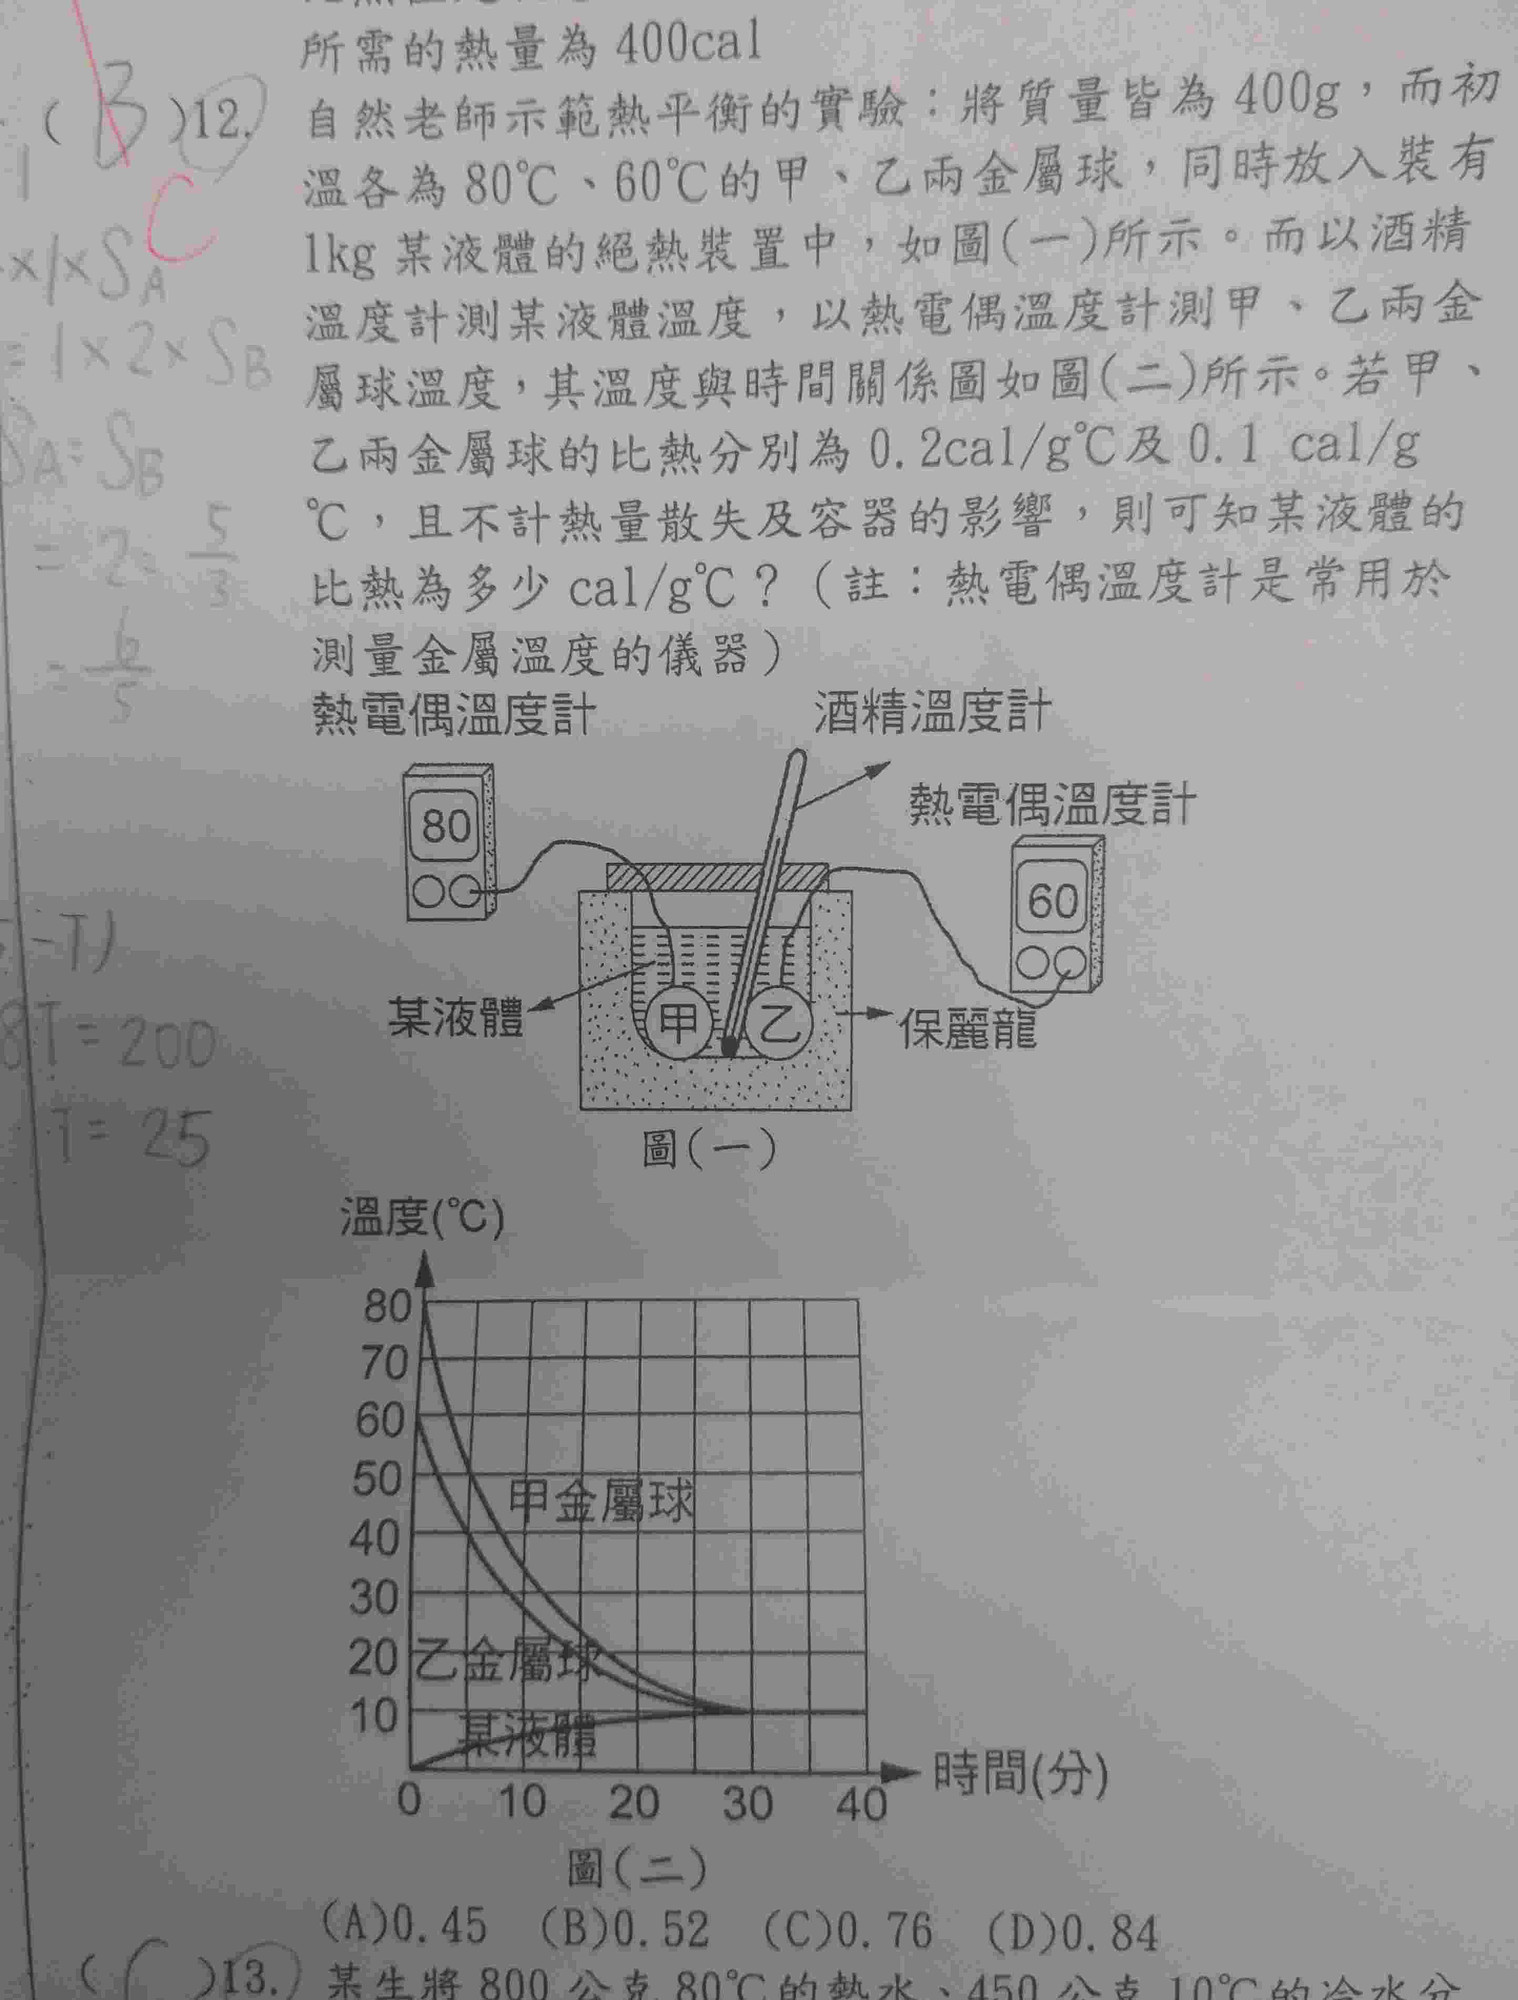 所需的熱量為 400cal
(B)12. 自然老師示範熱平衡的實驗：將質量皆為 400g，而初
溫各為 80℃、60℃的甲、乙兩金屬球，同時放入裝有
1kg 某液體的絕熱裝置中，如圖(一)所示。而以酒精
溫度計測某液體溫度，以熱電偶溫度計測甲、乙兩金
屬球溫度，其溫度與時間關係圖如圖(二)所示。若甲、
乙兩金屬球的比熱分別為 0.2cal/g℃及 0.1 cal/g
℃，且不計熱量散失及容器的影響，則可知某液體的
比熱為多少 cal/g℃？（註：熱電偶溫度計是常用於
測量金屬溫度的儀器）
C
1
x/xSA
=1×2×SB
SA:SB
=2:5/3
=6/5
-T)
8T=200
T=25
熱電偶溫度計
酒精溫度計
熱電偶溫度計
80
60
某液體
甲
乙
保麗龍
圖(一)
溫度(℃)
80
70
60
50
40
30
20
10
甲金屬球
乙金屬球
某液體
0 10 20 30 40
時間(分)
圖(二)
(A)0.45 (B)0.52 (C)0.76 (D)0.84
( )13. 某生將 800 公克 80℃的熱水、450 公克 10℃的冷水分